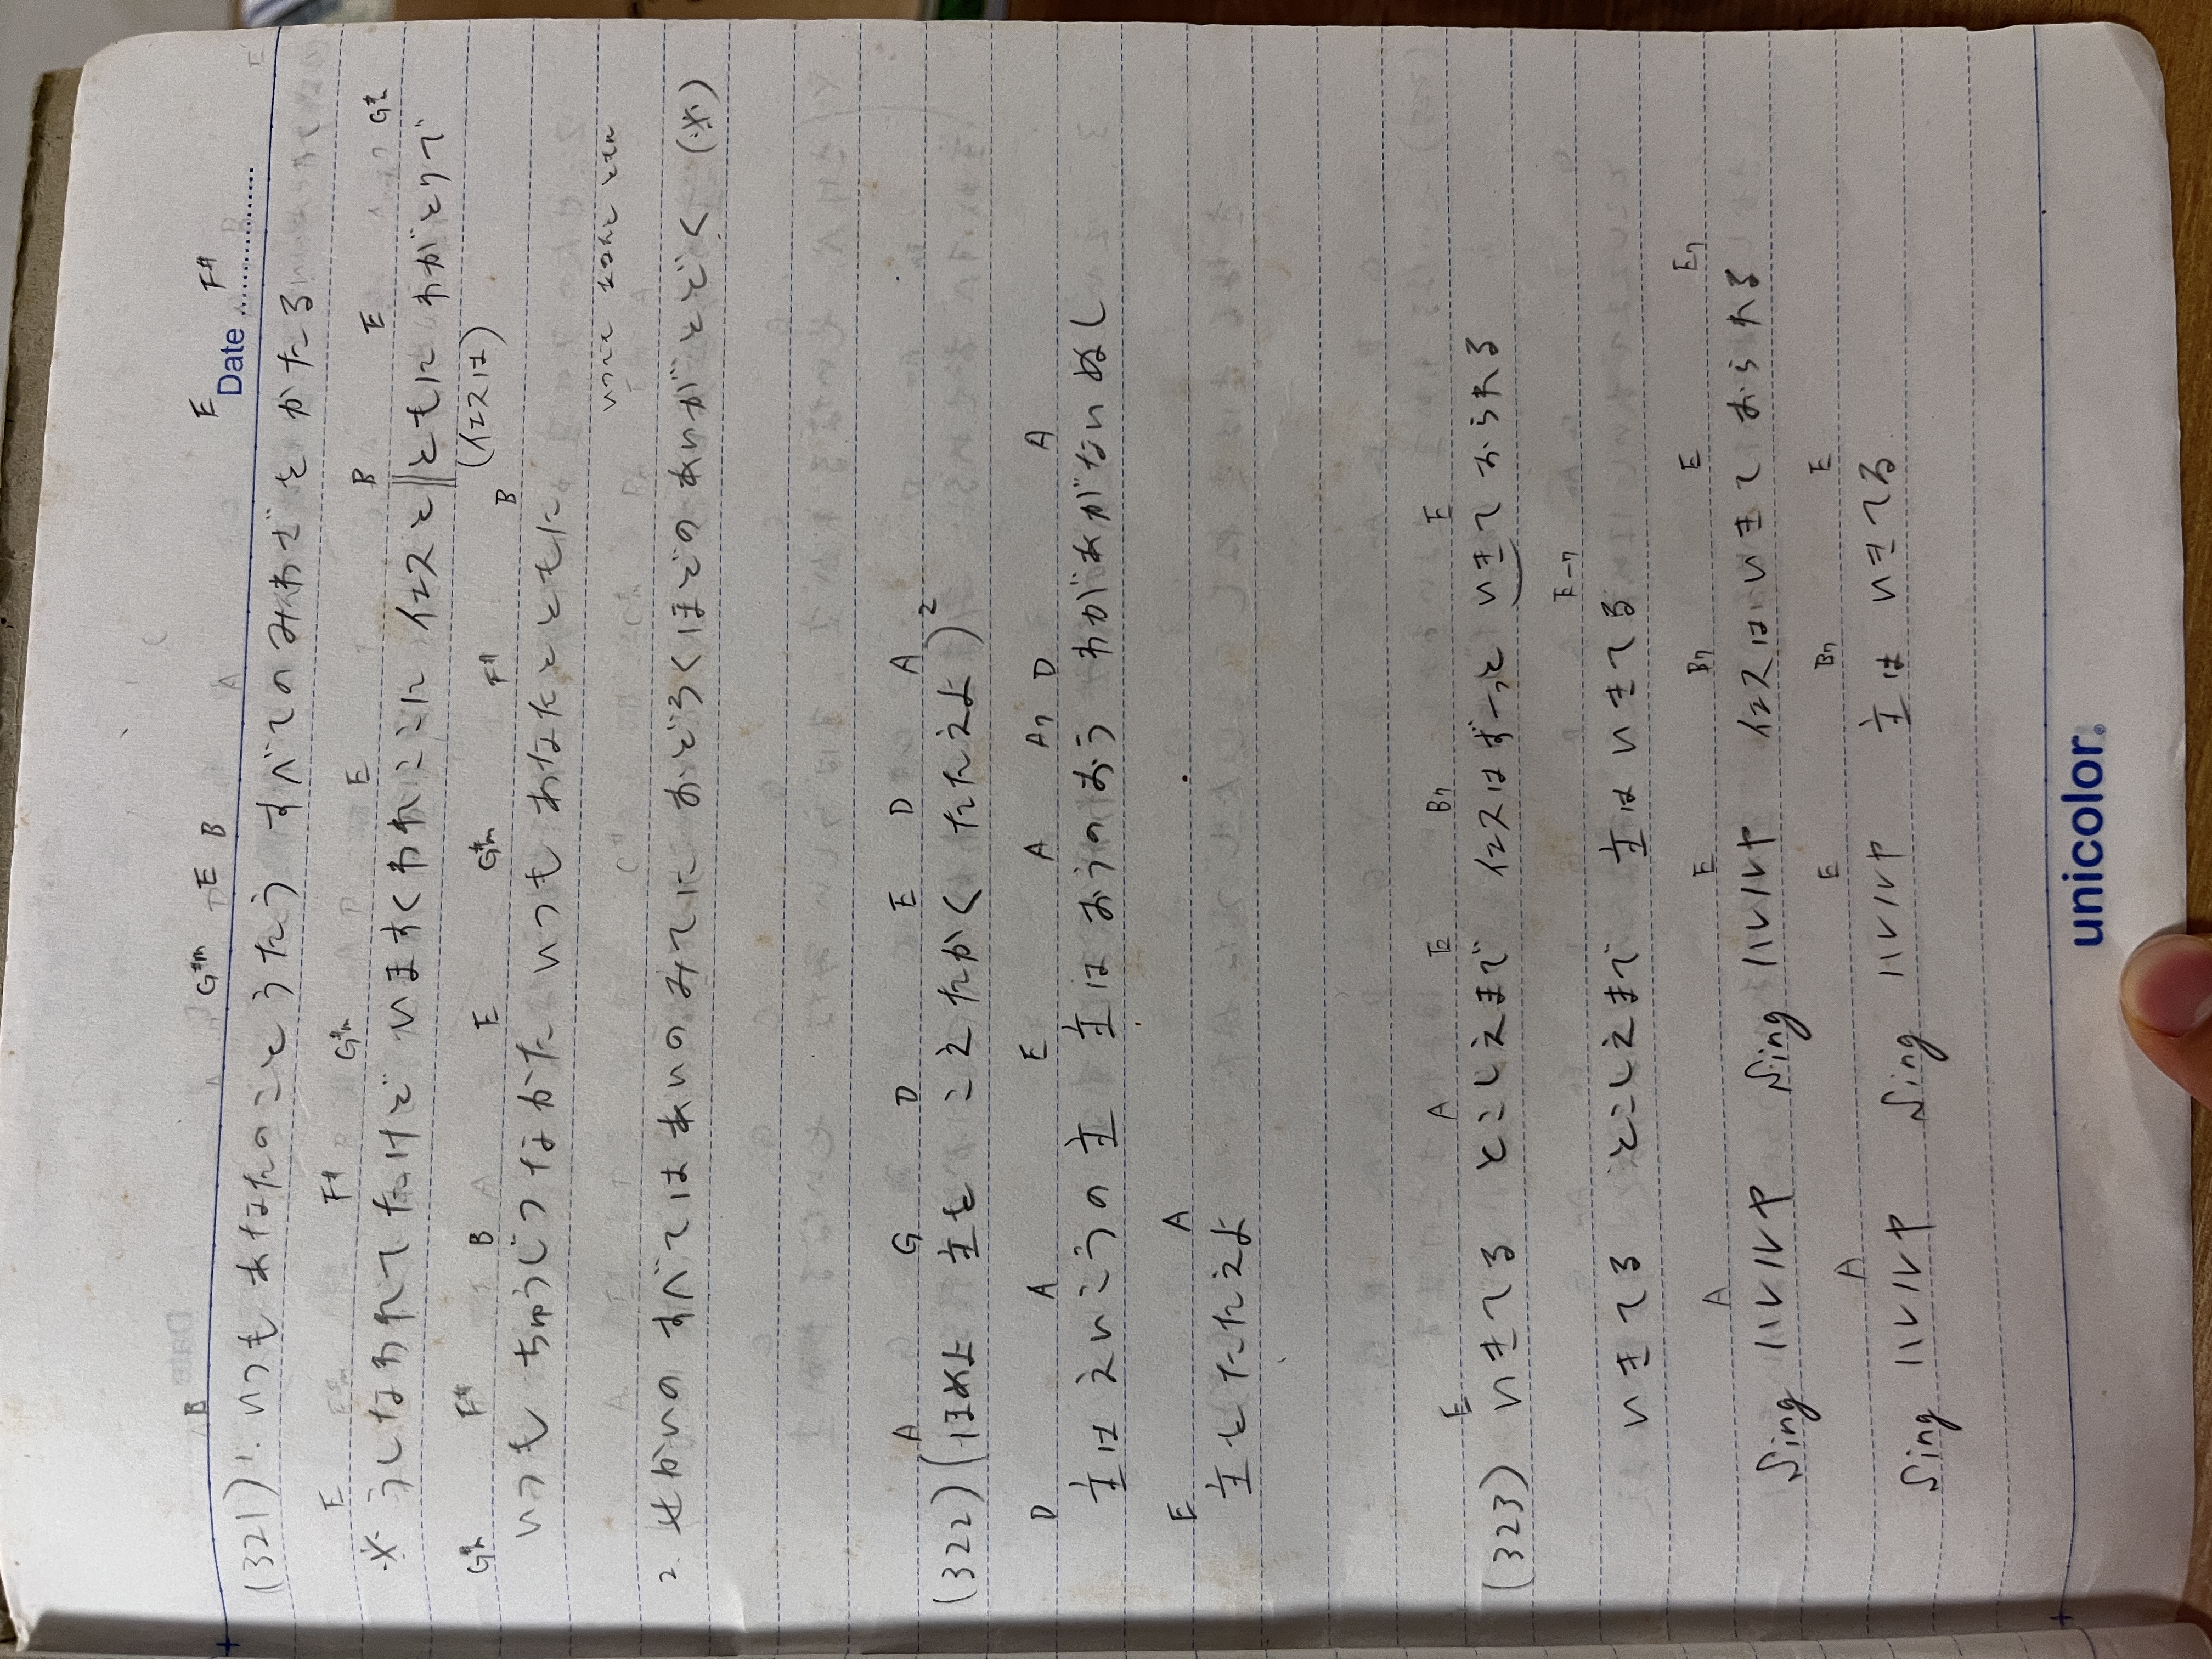 E F#
Date
B G#m E B
(321) 1. いつもあなたのことうたう すべてのみわざをかたる
E F# G#m E B E G#m
※ うしなわれてたけど いますくわれここに イエスと ともに わがとりで
(イエスは)
G#m F# B E G#m F# B
いつも ちゅうじつなかた いつもあなたとともに
いつも
2. せかいの すべてはあいのみてに おどろくほどのあいがとどく (※)
A G D E D A
(322) (ほめよ 主を こえたかくたたえよ)2
D A E A A7 D A
主はえいこうの主 主はおうのおう わがあがないぬし
E A
主をたたえよ
E A E B7 E
(323) いきてる とこしえまで イエスはずーっと いきておられる
E-7
いきてる とこしえまで 主はいきてる
A E B7 E E7
Sing ハレルヤ Sing ハレルヤ イエスはいきておられる
A E B7 E
Sing ハレルヤ Sing ハレルヤ 主はいきてる
unicolor